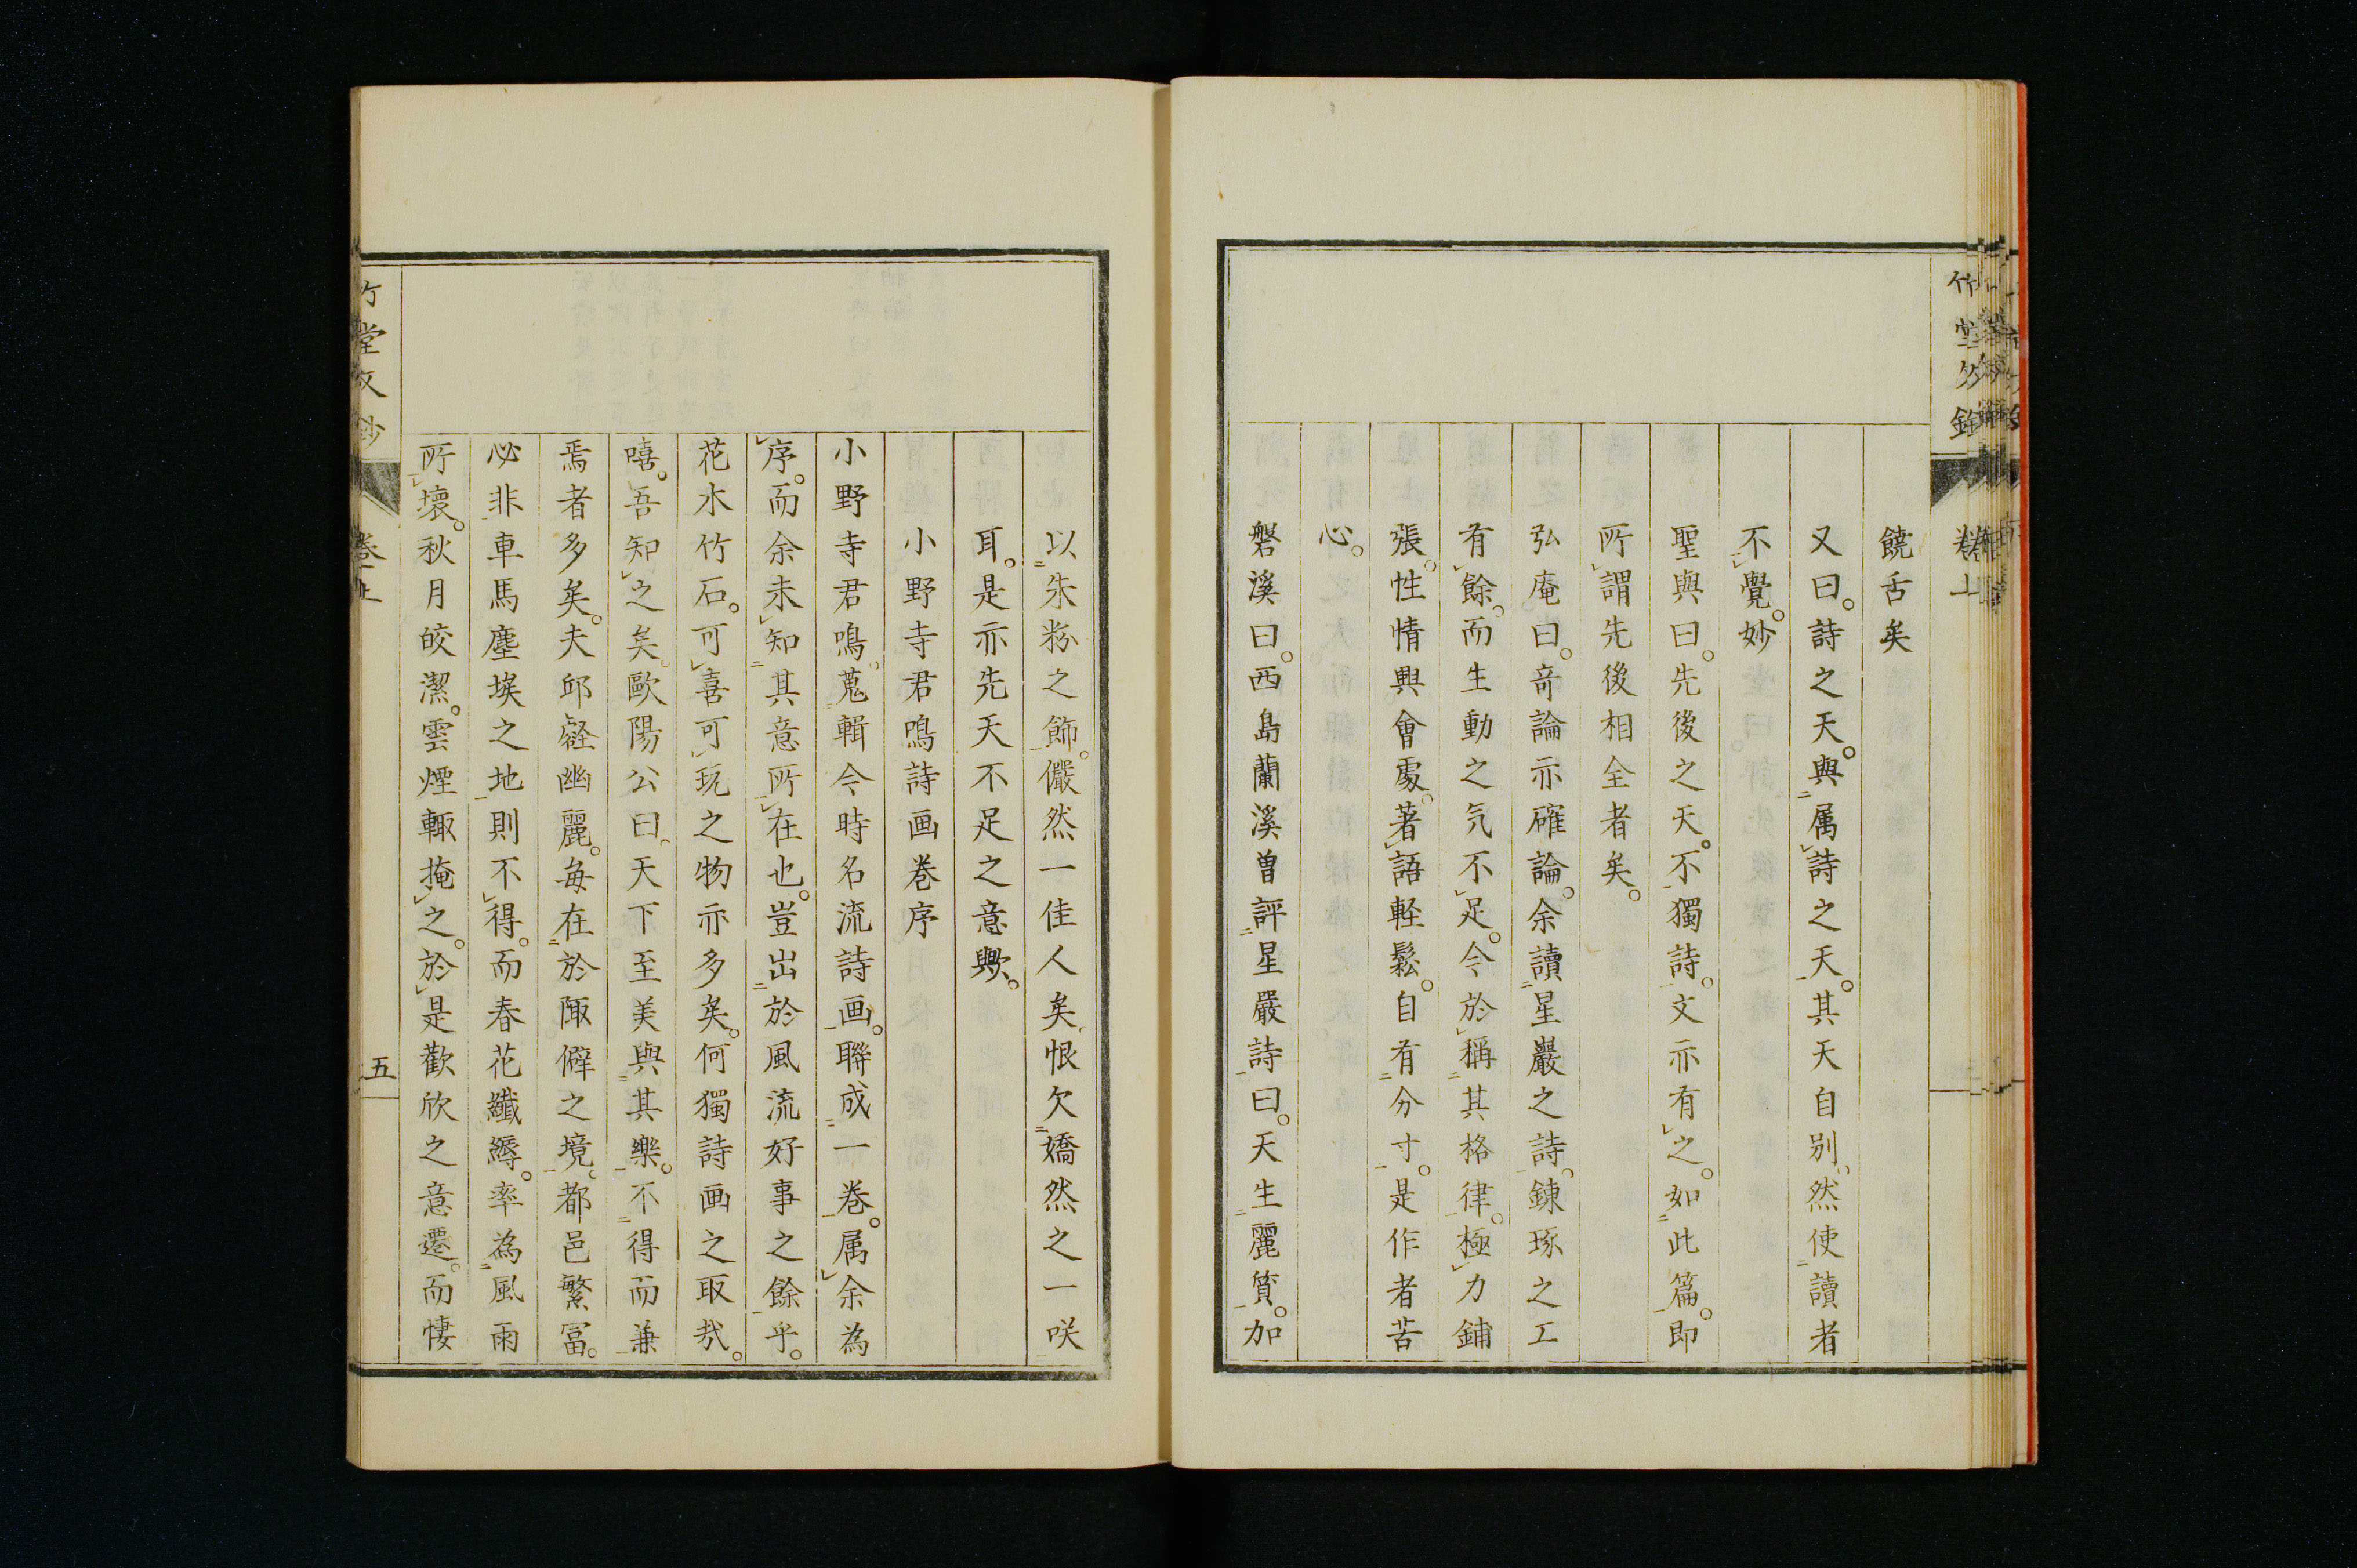 饒舌矣
又曰。詩之天。與属詩之天。其天自別。然使讀者
不覺。妙
聖與曰。先後之天。不獨詩。文亦有之。如此篇。即
所謂先後相全者矣。
弘庵曰。奇論亦確論。余讀星巖之詩。錬琢之工
有餘。而生動之気不足。今於稱其格律。極力鋪
張。性情興會處。著語軽鬆。自有分寸。是作者苦
心。
磐溪曰。西島蘭溪曽評星嚴詩曰。天生麗質。加
以朱粉之飾。儼然一佳人矣。恨欠嬌然之一咲
耳。是亦先天不足之意歟。
小野寺君鳴詩画巻序
小野寺君鳴。蒐輯今時名流詩画。聯成一巻。属余為
序。而余未知其意所在也。豈出於風流好事之餘乎。
花木竹石。可喜可玩之物亦多矣。何獨詩画之取哉。
嘻。吾知之矣。歐陽公曰。天下至美與其樂。不得而兼
焉者多矣。夫邱壑幽麗。毎在於陬僻之境。都邑繁冨。
必非車馬塵埃之地則不得。而春花纖縟。率為風雨
所壞。秋月皎潔。雲煙輙掩之。於是歡欣之意遷。而悽
竹堂文鈔
巻之上
五